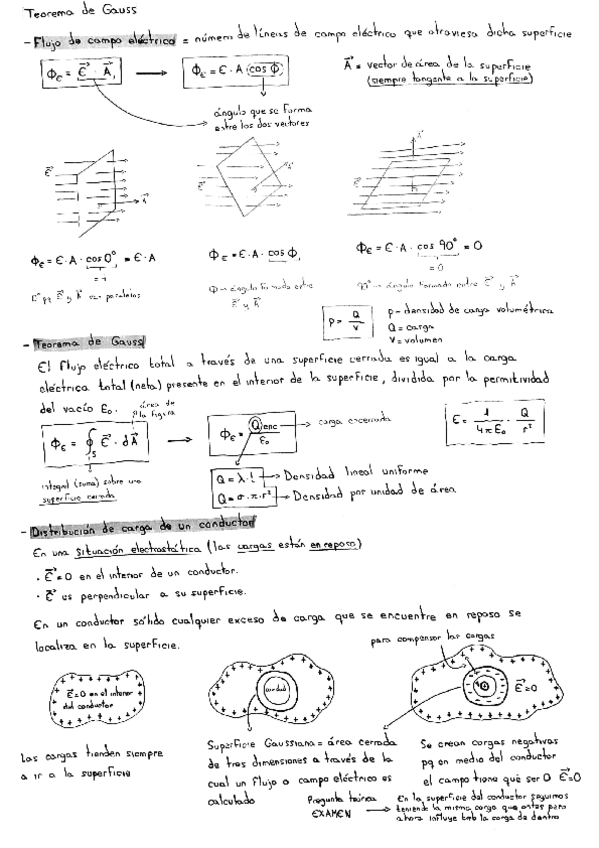 Teorema de Gauss
- Flujo de campo eléctrico = número de líneas de campo eléctrico que atraviesa dicha superficie
Φε = E⃗ · A⃗, → Φε = E · A (cos Φ)
A⃗ = vector de área de la superficie
(siempre tangente a la superficie)
ángulo que se forma
entre los dos vectores
E⃗ A⃗
E⃗ A⃗
E⃗ A⃗
Φε = E · A · cos 0° = E · A
= 1
Φε = E · A · cos Φ,
Φε = E · A · cos 90° = 0
= 0
pq E⃗ y A⃗ son paralelos
Φ → ángulo formado entre
E⃗ y A⃗
90° → ángulo formado entre E⃗ y A⃗
ρ = Q / V
ρ - densidad de carga volumétrica
Q = carga
V = volumen
- Teorema de Gauss
El flujo eléctrico total a través de una superficie cerrada es igual a la carga
eléctrica total (neta) presente en el interior de la superficie, dividida por la permitividad
del vacío ε₀.
área de
la figura
Φε = ∮s E⃗ · dA⃗ → Φε = Qenc / ε₀
carga encerrada
E = 1 / 4πε₀ · Q / r²
integral (suma) sobre una
superficie cerrada
Q = λ · l → Densidad lineal uniforme
Q = σ · π · r² → Densidad por unidad de área
- Distribución de carga de un conductor
En una situación electrostática (las cargas están en reposo)
· E⃗ = 0 en el interior de un conductor.
· E⃗ es perpendicular a su superficie.
En un conductor sólido cualquier exceso de carga que se encuentre en reposo se
localiza en la superficie.
para compensar las cargas
E⃗ = 0 en el interior
del conductor
cavidad
E⃗ = 0
Las cargas tienden siempre
a ir a la superficie
Superficie Gaussiana = área cerrada
de tres dimensiones a través de la
cual un flujo o campo eléctrico es
calculado
Se crean cargas negativas
pq en medio del conductor
el campo tiene que ser 0 E⃗ = 0
Pregunta teórica
EXAMEN
→ En la superficie del conductor seguimos
teniendo la misma carga que antes pero
ahora influye tmb la carga de dentro